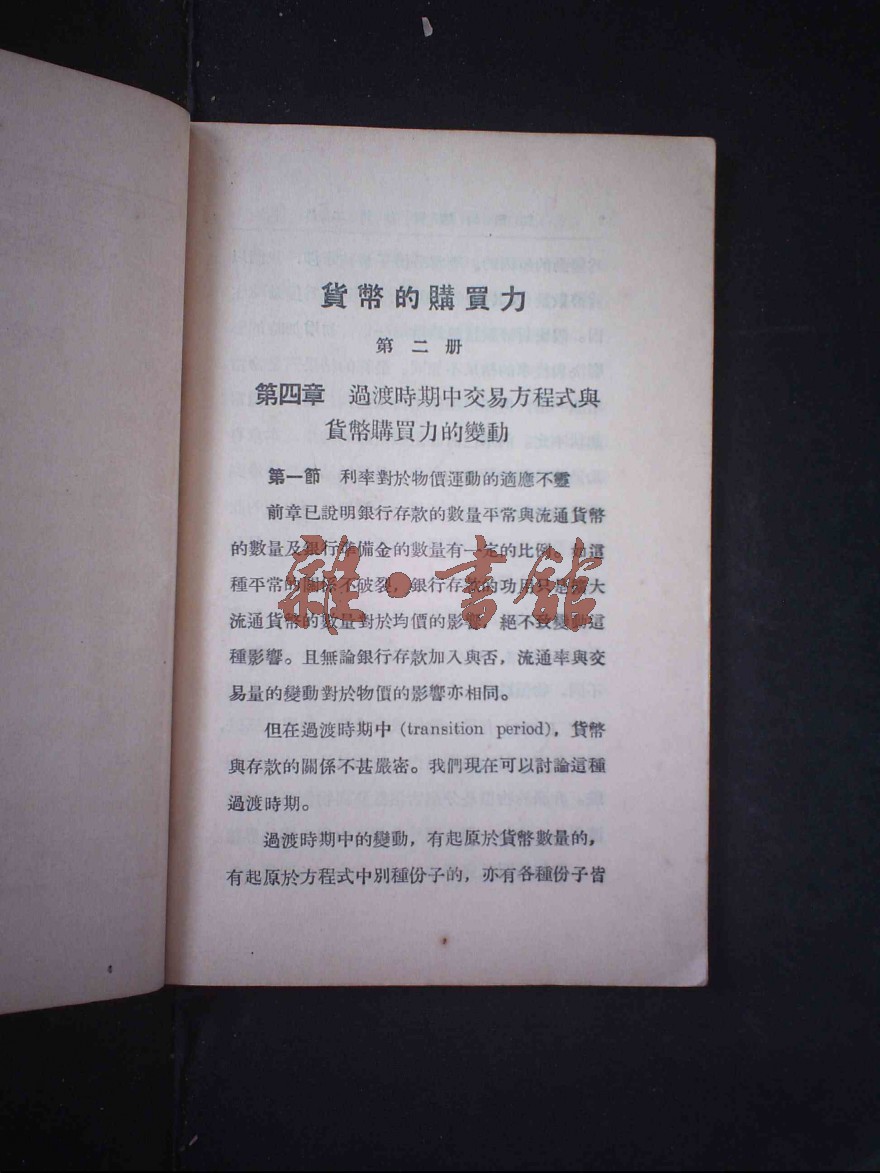 貨幣的購買力
第二册
第四章 過渡時期中交易方程式與
貨幣購買力的變動
第一節 利率對於物價運動的適應不靈
前章已說明銀行存款的數量平常與流通貨幣
的數量及銀行準備金的數量有一定的比例。如這
種平常的關係不破裂，銀行存款的功用只是擴大
流通貨幣的數量對於均價的影響，絕不致變動這
種影響。且無論銀行存款加入與否，流通率與交
易量的變動對於物價的影響亦相同。
但在過渡時期中 (transition period)，貨幣
與存款的關係不甚嚴密。我們現在可以討論這種
過渡時期。
過渡時期中的變動，有起原於貨幣數量的，
有起原於方程式中別種份子的，亦有各種份子皆
雜·書館